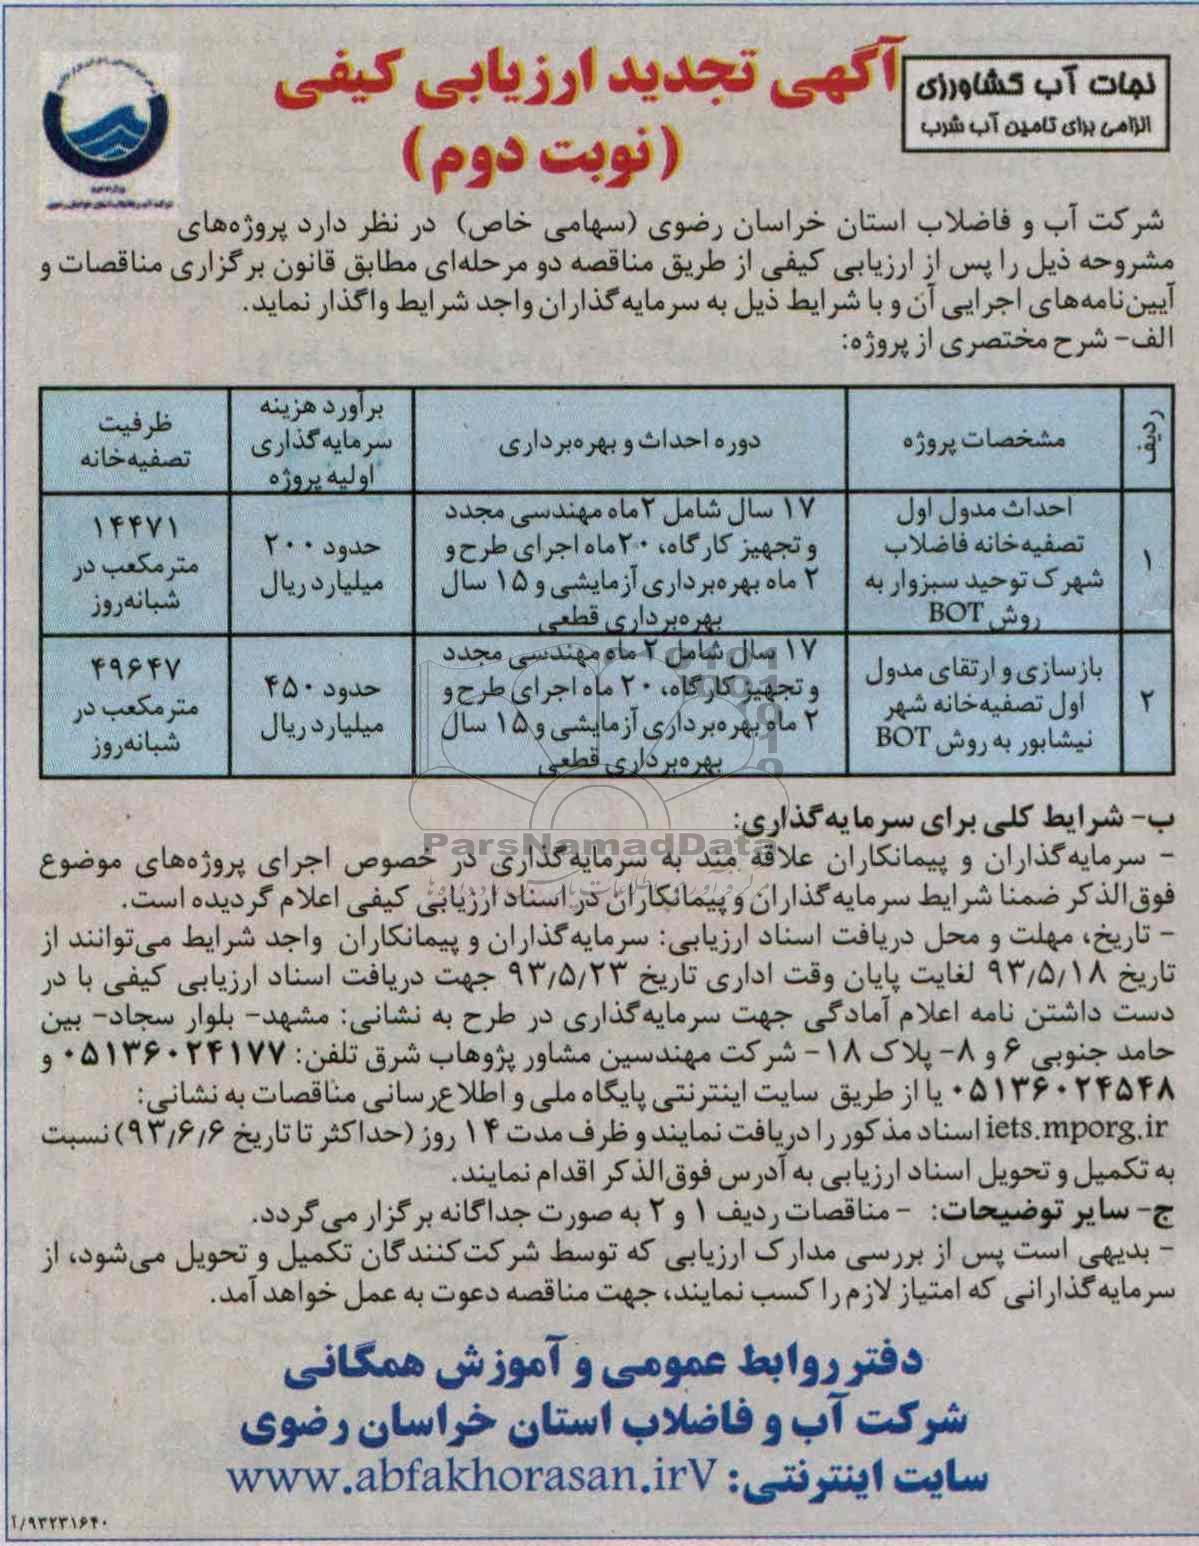 آگهی تجدید ارزیابی کیفی
(نوبت دوم)
نجات آب کشاورزی
الزامی برای تامین آب شرب
شرکت آب و فاضلاب استان خراسان رضوی (سهامی خاص) در نظر دارد پروژه‌های
مشروحه ذیل را پس از ارزیابی کیفی از طریق مناقصه دو مرحله‌ای مطابق قانون برگزاری مناقصات و
آیین‌نامه‌های اجرایی آن و با شرایط ذیل به سرمایه‌گذاران واجد شرایط واگذار نماید.
الف- شرح مختصری از پروژه:
ردیف
مشخصات پروژه
دوره احداث و بهره‌برداری
برآورد هزینه
سرمایه‌گذاری
اولیه پروژه
ظرفیت
تصفیه‌خانه
۱
احداث مدول اول
تصفیه‌خانه فاضلاب
شهرک توحید سبزوار به
روش BOT
۱۷ سال شامل ۲ماه مهندسی مجدد
و تجهیز کارگاه، ۲۰ماه اجرای طرح و
۲ ماه بهره‌برداری آزمایشی و ۱۵ سال
بهره‌برداری قطعی
حدود ۲۰۰
میلیارد ریال
۱۴۴۷۱
مترمکعب در
شبانه‌روز
۲
بازسازی و ارتقای مدول
اول تصفیه‌خانه شهر
نیشابور به روش BOT
۱۷ سال شامل ۲ ماه مهندسی مجدد
و تجهیز کارگاه، ۲۰ ماه اجرای طرح و
۲ ماه بهره‌برداری آزمایشی و ۱۵ سال
بهره‌برداری قطعی
حدود ۴۵۰
میلیارد ریال
۴۹۶۴۷
مترمکعب در
شبانه‌روز
ب- شرایط کلی برای سرمایه‌گذاری:
ParsNamadData
- سرمایه‌گذاران و پیمانکاران علاقه مند به سرمایه‌گذاری در خصوص اجرای پروژه‌های موضوع
فوق‌الذکر ضمنا شرایط سرمایه‌گذاران و پیمانکاران در اسناد ارزیابی کیفی اعلام گردیده است.
- تاریخ، مهلت و محل دریافت اسناد ارزیابی: سرمایه‌گذاران و پیمانکاران واجد شرایط می‌توانند از
تاریخ ۹۳/۵/۱۸ لغایت پایان وقت اداری تاریخ ۹۳/۵/۲۳ جهت دریافت اسناد ارزیابی کیفی با در
دست داشتن نامه اعلام آمادگی جهت سرمایه‌گذاری در طرح به نشانی: مشهد- بلوار سجاد- بین
حامد جنوبی ۶ و ۸- پلاک ۱۸- شرکت مهندسین مشاور پژوهاب شرق تلفن: ۰۵۱۳۶۰۲۴۱۷۷ و
۰۵۱۳۶۰۲۴۵۴۸ یا از طریق سایت اینترنتی پایگاه ملی و اطلاع‌رسانی مناقصات به نشانی:
iets.mporg.ir اسناد مذکور را دریافت نمایند و ظرف مدت ۱۴ روز (حداکثر تا تاریخ ۹۳/۶/۶) نسبت
به تکمیل و تحویل اسناد ارزیابی به آدرس فوق‌الذکر اقدام نمایند.
ج- سایر توضیحات: - مناقصات ردیف ۱ و ۲ به صورت جداگانه برگزار می‌گردد.
- بدیهی است پس از بررسی مدارک ارزیابی که توسط شرکت‌کنندگان تکمیل و تحویل می‌شود، از
سرمایه‌گذارانی که امتیاز لازم را کسب نمایند، جهت مناقصه دعوت به عمل خواهد آمد.
دفتر روابط عمومی و آموزش همگانی
شرکت آب و فاضلاب استان خراسان رضوی
سایت اینترنتی: www.abfakhorasan.irV
۹۳۲۳۱۶۴۰/آ